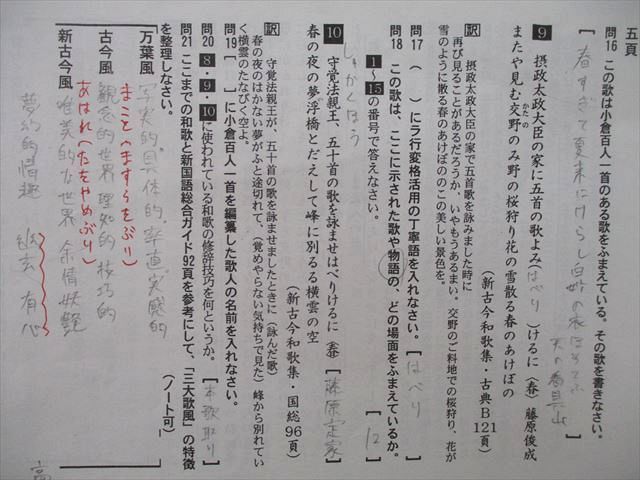 五頁
問16　この歌は小倉百人一首のある歌をふまえている。その歌を書きなさい。
［春すぎて夏来にけらし白妙の衣ほすてふ
天の香具山
9　摂政太政大臣の家に五首の歌よみ（はべり）けるに（春）藤原俊成
またや見む交野のみ野の桜狩り花の雪散る春のあけぼの
かたの
（新古今和歌集・古典B 121頁）
訳　摂政太政大臣の家で五首歌を詠みました時に
再び見ることがあるだろうか、いやもうあるまい。交野のご料地での桜狩り、花が
雪のように散る春のあけぼののこの美しい景色を。
問17　（　）にラ行変格活用の丁寧語を入れなさい。［はべり］
問18　この歌は、ここに示された歌や物語の、どの場面をふまえているか。
1〜15の番号で答えなさい。［12］
しゅかくほう
10　守覚法親王、五十首の歌を詠ませはべりけるに（春）［藤原定家］
春の夜の夢浮橋とだえして峰に別るる横雲の空
（新古今和歌集・国総96頁）
訳　守覚法親王が、五十首の歌を詠ませましたときに（詠んだ歌）
春の夜のはかない夢がふと途切れて、（覚めやらない気持ちで見た）峰から別れてい
く横雲のたなびく空よ。
問19［　］に小倉百人一首を編纂した歌人の名前を入れなさい。
問20　8・9・10に使われている和歌の修辞技巧を何というか。［本歌取り］
問21　ここまでの和歌と新国語総合ガイド92頁を参考にして、「三大歌風」の特徴
を整理しなさい。（ノート可）
万葉風　写実的 具体的 率直 実感的
まこと（ますらをぶり）
古今風　観念的世界 理知的 技巧的
あはれ（たをやめぶり）
新古今風　唯美的な世界 余情妖艶
夢幻的情趣　幽玄 有心